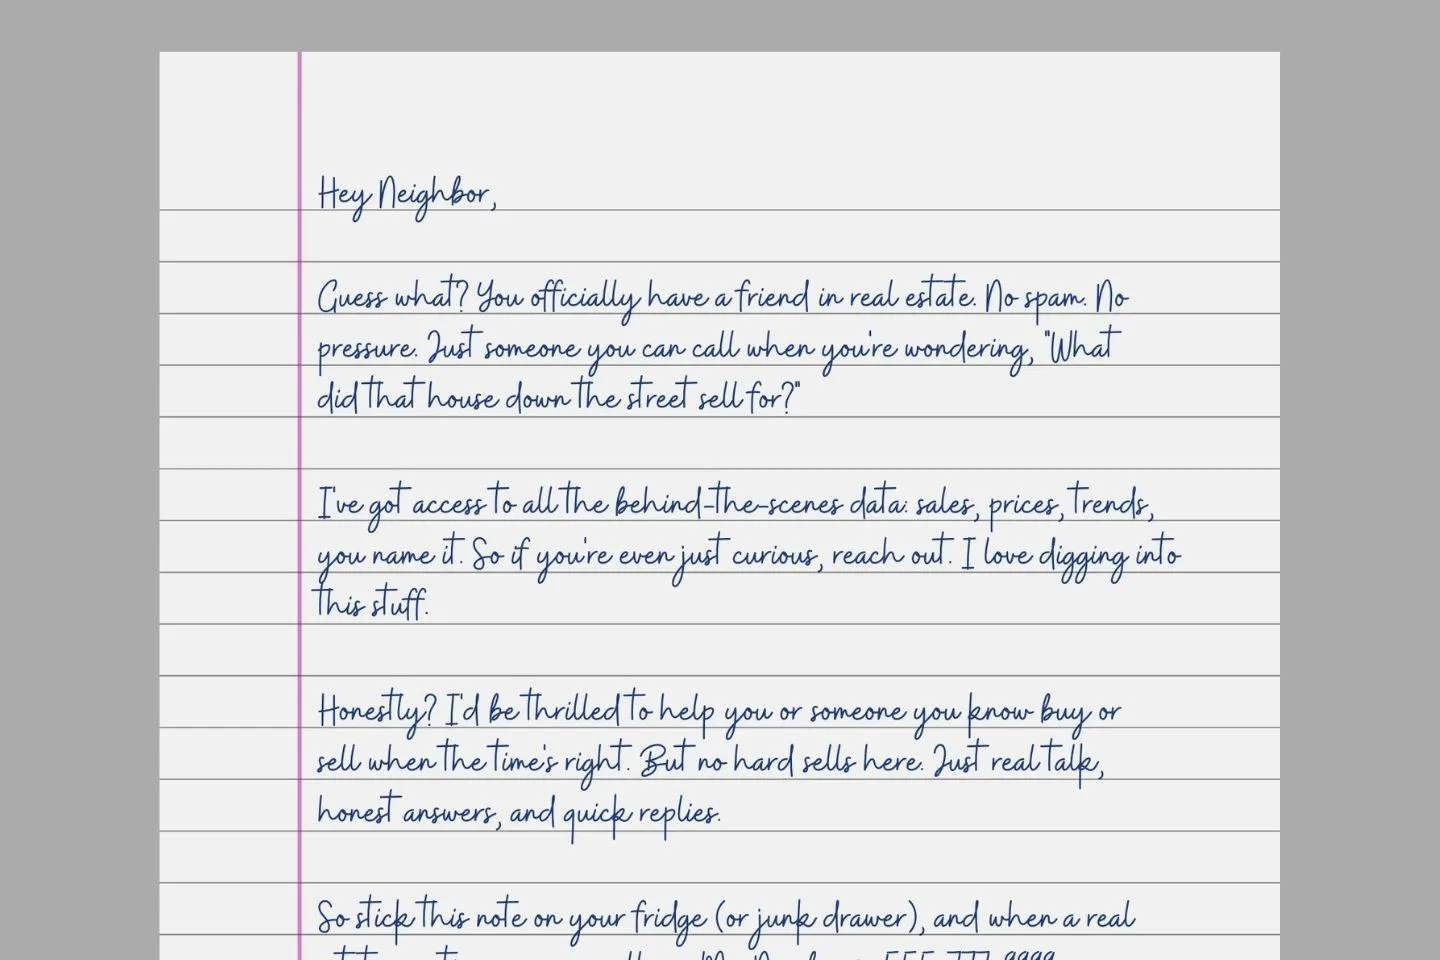 Hey Neighbor,
Guess what? You officially have a friend in real estate. No spam. No
pressure. Just someone you can call when you're wondering, "What
did that house down the street sell for?"
I've got access to all the behind-the-scenes data: sales, prices, trends,
you name it. So if you're even just curious, reach out. I love digging into
this stuff.
Honestly? I'd be thrilled to help you or someone you know buy or
sell when the time's right. But no hard sells here. Just real talk,
honest answers, and quick replies.
So stick this note on your fridge (or junk drawer), and when a real